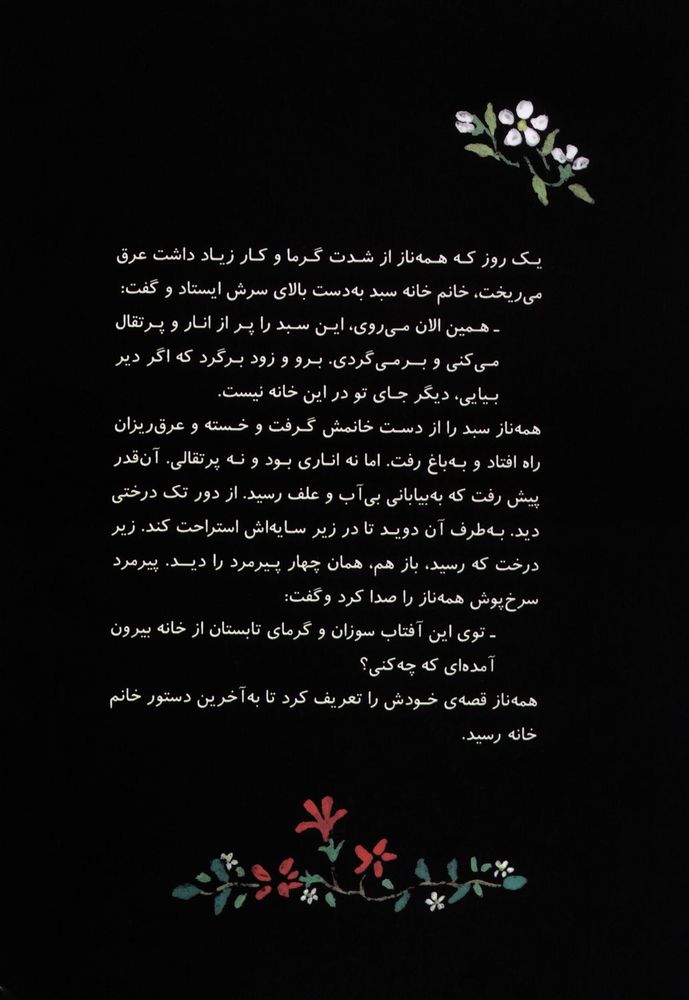 یک روز که همه‌ناز از شدت گرما و کار زیاد داشت عرق
می‌ریخت، خانم خانه سبد به‌دست بالای سرش ایستاد و گفت:
ـ همین الان می‌روی، این سبد را پر از انار و پرتقال
می‌کنی و برمی‌گردی. برو و زود برگرد که اگر دیر
بیایی، دیگر جای تو در این خانه نیست.
همه‌ناز سبد را از دست خانمش گرفت و خسته و عرق‌ریزان
راه افتاد و به‌باغ رفت. اما نه اناری بود و نه پرتقالی. آن‌قدر
پیش رفت که به‌بیابانی بی‌آب و علف رسید. از دور تک درختی
دید. به‌طرف آن دوید تا در زیر سایه‌اش استراحت کند. زیر
درخت که رسید، باز هم، همان چهار پیرمرد را دید. پیرمرد
سرخ‌پوش همه‌ناز را صدا کرد و گفت:
ـ توی این آفتاب سوزان و گرمای تابستان از خانه بیرون
آمده‌ای که چه‌کنی؟
همه‌ناز قصه‌ی خودش را تعریف کرد تا به‌آخرین دستور خانم
خانه رسید.